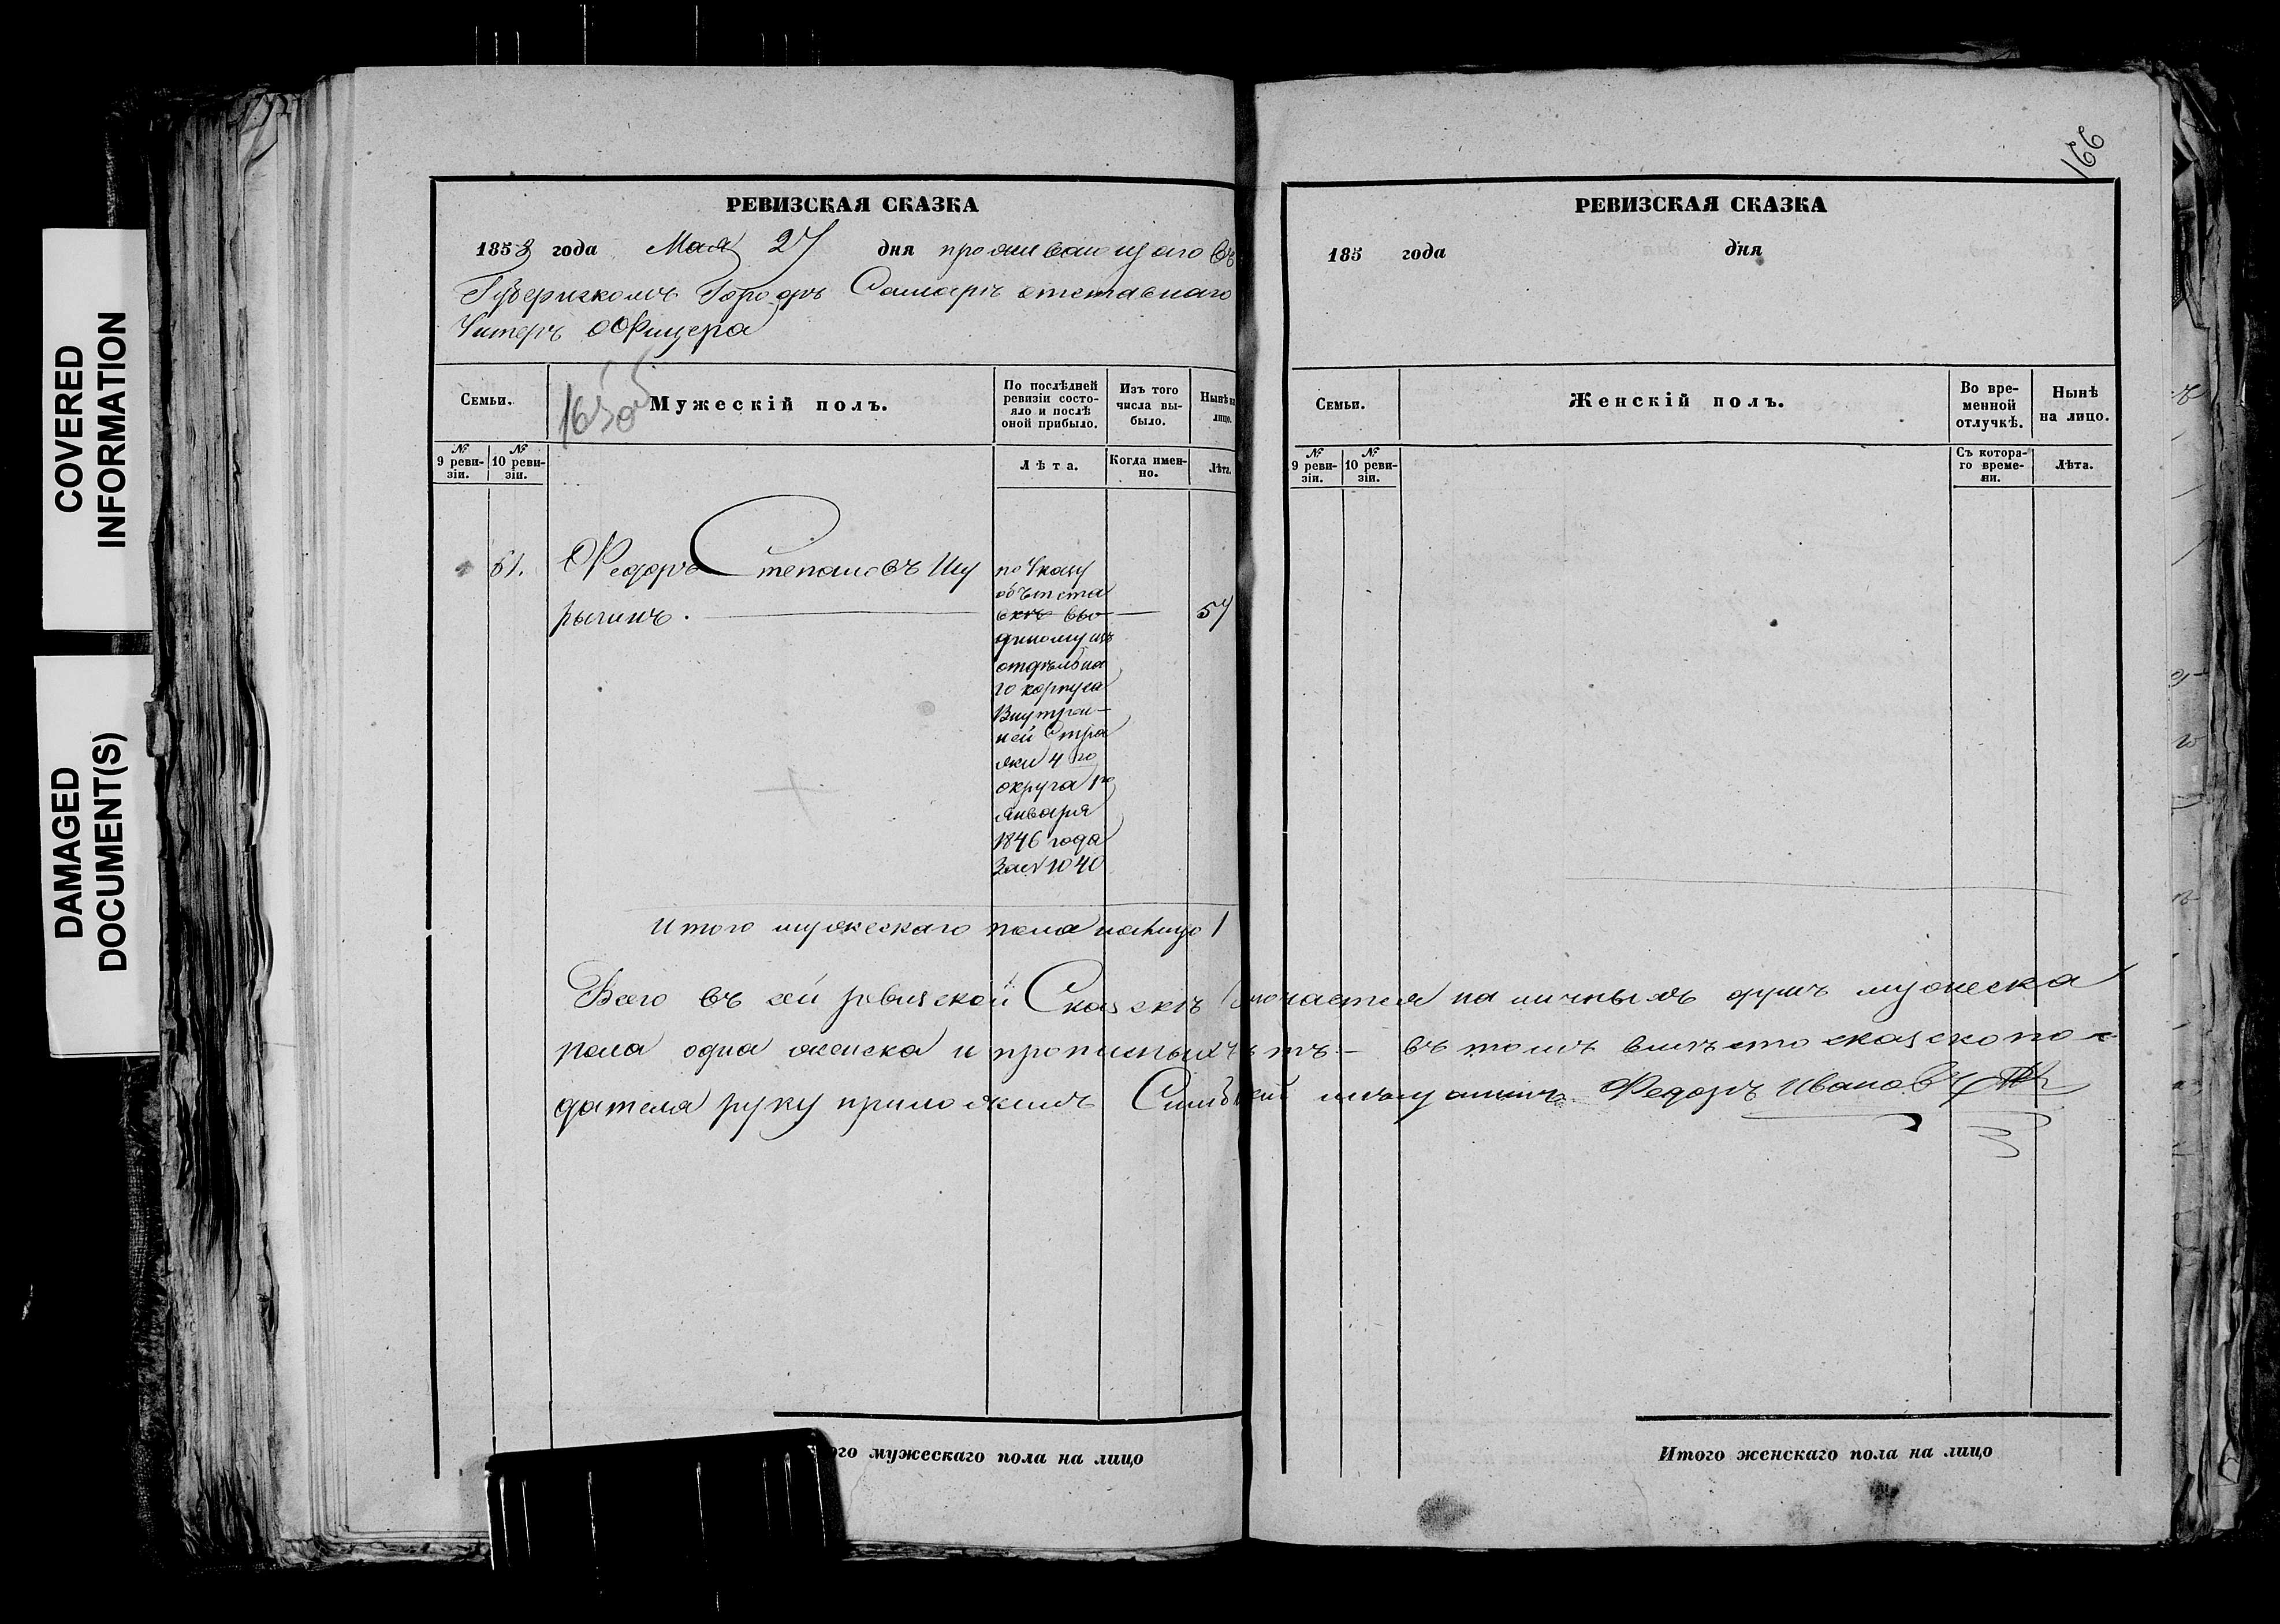 COVERED
INFORMATION
DAMAGED
DOCUMENT(S)
РЕВИЗСКАЯ СКАЗКА
1858 года Мая 27 дня проживающаго въ
Губернскомъ Городѣ Самарѣ отставнаго
Унтеръ оофицера
Семьи.
Мужескій полъ.
По послѣдней
ревизіи состо-
яло и послѣ
оной прибыло.
Изъ того
числа вы-
было.
Нынѣ на
лицо.
№
9 реви-
зіи.
№
10 реви-
зіи.
Лѣта.
Когда имен-
но.
Лѣта.
61. Федоръ Степановъ Шу
рыгинъ. 57
по Указу
объ отста
вкѣ вы
данному изъ
отдѣльна
го корпуса
Внутрен-
ней Стра
жи 4го
округа 1го
Января
1846 года
За № 1040
Итого мужескаго пола налицо 1
Всего въ сей ревизской Сказскѣ наличныхъ душъ мужеска
пола одна женска и прописныхъ нѣтъ - въ томъ вмѣсто сказкопо-
дателя руку приложилъ мѣщанинъ Федоръ Ивановъ
Итого мужескаго пола на лицо
166
РЕВИЗСКАЯ СКАЗКА
185 года дня
Семьи.
Женскій полъ.
Во вре-
менной
отлучкѣ.
Нынѣ
на лицо.
№
9 реви-
зіи.
№
10 реви-
зіи.
Съ котора-
го време-
ни.
Лѣта.
Итого женскаго пола на лицо